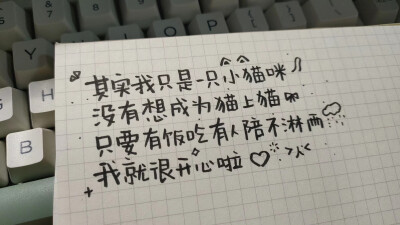 & 7
* 8
Y
U
G
H
B
其实我只是一只小猫咪
没有想成为猫上猫
只要有饭吃有人陪不淋雨
我就很开心啦